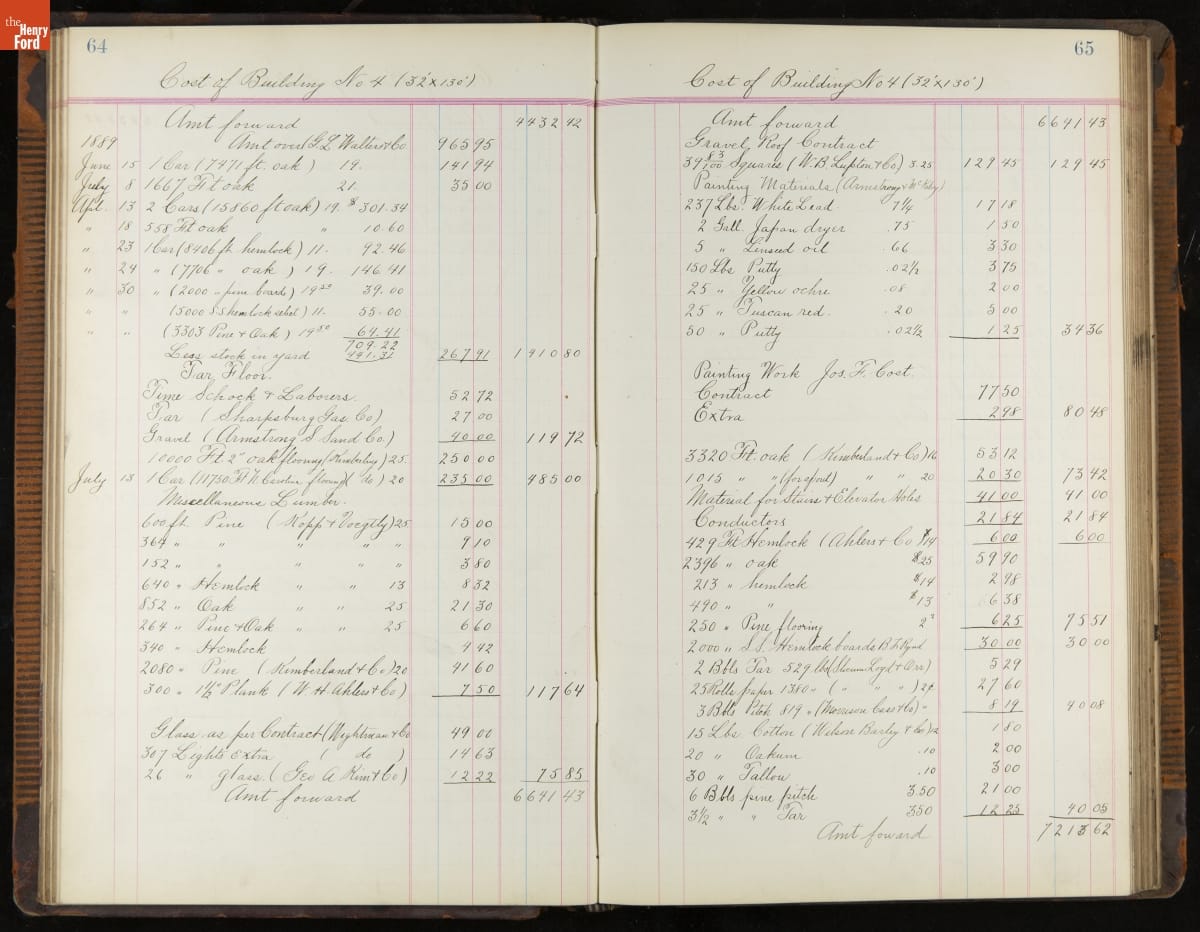 the
Henry
Ford
64
Cost of Building No 4 (32'x130')
Amt forward 4432 42
1889 Amt over G. L. Walter & Co 965 95
June 15 1 Car (7471 ft. oak) 19. 141 94
July 8 1667 Ft oak 21. 35 00
Apl. 13 2 Cars (15860 ft oak) 19. $ 301.34
" 18 558 Ft oak " 10.60
" 23 1 Car (8406 ft hemlock) 11. 92.46
" 24 " (7706 " oak) 19. 146.41
" 30 " (2000 " pine boards) 19 50 39.00
" " (5000 S S hemlock select) 11. 55.00
" " (3303 Pine & Oak) 19 50 64.41
709.22
Less stock in yard 441.31 267 91 1910 80
Tar Floor.
Time Schock & Laborers. 52 72
Tar (Sharpsburg Gas Co) 27 00
Gravel (Armstrong S Sand Co.) 40 00 119 72
10000 Ft. 2" oak flooring (Kimberling) 25. 250 00
July 13 1 Car (11750 Ft N Carolina flooring (do) 20 235 00 485 00
Miscellaneous Lumber.
600 ft Pine (Kopp & Voegtly) 25 15 00
364 " " " " " 9 10
152 " " " " " 3 80
640 " Hemlock " " 13 8 32
852 " Oak " " 25 21 30
264 " Pine & Oak " " 25 6 60
340 " Hemlock 4 42
2080 " Pine (Kimberland & Co) 20 41 60
300 " 1½" Plank (W. H. Ahlers & Co) 7 50 117 64
Glass as per Contract (Wightman & Co 49 00
307 Lights Extra (do) 14 63
26 " glass. (Geo A Kim & Co) 12 22 75 85
Amt forward 6641 43
65
Cost of Building No 4 (32'x130')
Amt forward 6641 43
Gravel Roof Contract
39 83/100 Squares (W. B. Lupton & Co) 3.25 129 45 129 45
Painting Materials (Armstrong &
237 Lbs. White Lead 7¼ 17 18
2 Gall. Japan dryer .75 1 50
5 " Linseed oil .66 3 30
150 Lbs Putty .02½ 3 75
25 " Yellow ochre .08 2 00
25 " Tuscan red. .20 5 00
50 " Putty .02½ 1 25 34 36
Painting Work Jos. F. Cost.
Contract 77 50
Extra 2 98 80 48
3320 Ft. oak (Kimberland & Co) 16 53 12
1015 " " (for spout) " " 20 20 30 73 42
Material for Stairs & Elevator Holes 41 00 41 00
Conductors 21 84 21 84
429 Ft Hemlock (Ahlers & Co $14 6 00 6 00
2396 " oak $25 59 90
213 " hemlock $14 2 98
490 " " $13 6 38
250 " Pine flooring 2" 6 25 75 51
2000 " S.S. Hemlock boards 30 00 30 00
2 Bbls Tar 529 lbs 5 29
25 Rolls paper 1380 " ( " " " ) 2¢ 27 60
3 Bbls Pitch 819 " (Morrison Cass & Co) " 8 19 40 08
15 Lbs Cotton (Wilson Barley & Co) 12 1 80
20 " Oakum .10 2 00
30 " Tallow .10 3 00
6 Bbls pine pitch 3.50 21 00
3½ " " Tar 350 12 25 40 05
Amt foward 7213 62